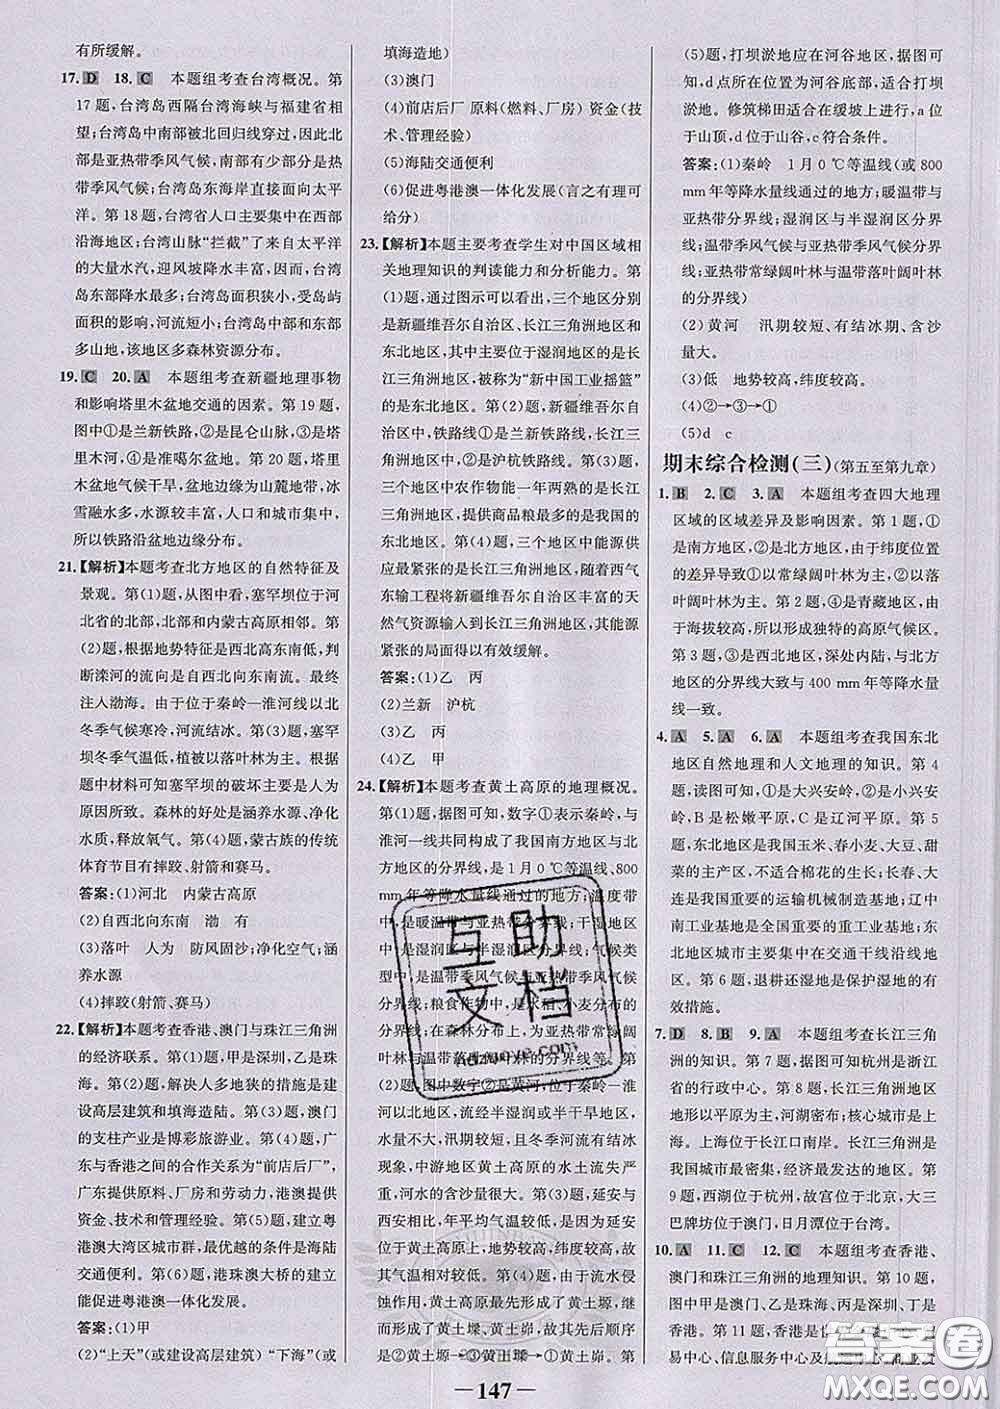 有所缓解。
17. D 18. C 本题组考查台湾概况。第
17题,台湾岛西隔台湾海峡与福建省相
望;台湾岛中南部被北回归线穿过,因此北
部是亚热带季风气候,南部有少部分是热
带季风气候;台湾岛东海岸直接面向太平
洋。第18题,台湾省人口主要集中在西部
沿海地区;台湾山脉“拦截”了来自太平洋
的大量水汽,迎风坡降水丰富,因而台湾
岛东部降水量大;台湾岛面积狭小,受岛屿
面积的影响,河流短小;台湾岛中部和东部
多山地,该地区多森林资源分布。
19. C 20. A 本题组考查新疆地理事物
和影响塔里木盆地交通的因素。第19题,
图中①是兰新铁路,②是昆仑山脉,③是塔
里木河,④是准噶尔盆地。第20题,塔里
木盆地气候干旱,盆地边缘为山麓地带,冰
雪融水多,水源较丰富,人口和城市集中,
所以铁路沿盆地边缘分布。
21.【解析】本题考查北方地区的自然特征及
景观。第(1)题,从图中看,塞罕坝位于河
北省的北部,北部和内蒙古高原相邻。第
(2)题,根据地势特征是西北高东南低,判
断滦河的流向是自西北向东南流。最终
注入渤海。由于位于秦岭—淮河线以北,
冬季气候寒冷,河流结冰。第(3)题,塞罕
坝冬季气温低,植被以落叶林为主。根据
题中材料可知塞罕坝的破坏主要是人为
原因所致。森林的好处是涵养水源、净化
水质,释放氧气。第(4)题,蒙古族的传统
体育节目有摔跤、射箭和赛马。
答案:(1)河北 内蒙古高原
(2)自西北向东南 渤 有
(3)落叶 人为 防风固沙;净化空气;涵
养水源
(4)摔跤(射箭、赛马)
22.【解析】本题考查香港、澳门与珠江三角洲
的经济联系。第(1)题,甲是深圳,乙是珠
海。第(2)题,解决人多地狭的措施是建
设高层建筑和填海造陆。第(3)题,澳门
的支柱产业是博彩旅游业。第(4)题,广
东与香港之间的合作关系为“前店后厂”,
广东提供原料、厂房和劳动力,港澳提供
资金、技术和管理经验。第(5)题,建立粤
港澳大湾区城市群,最优越的条件是海陆
交通便利。第(6)题,港珠澳大桥的建立
能促进粤港澳一体化发展。
答案:(1)甲
(2)“上天”(或建设高层建筑) “下海”(或
填海造地)
(3)澳门
(4)前店后厂 原料(燃料、厂房) 资金(技
术、管理经验)
(5)海陆交通便利
(6)促进粤港澳一体化发展(言之有理可
给分)
23.【解析】本题主要考查学生对中国区域相
关地理知识的判读能力和分析能力。第
(1)题,通过图示可以看出,三个地区分别
是新疆维吾尔自治区、长江三角洲地区和
东北地区,其中主要位于湿润地区的是长
江三角洲地区,被称为“新中国工业摇篮”
的是东北地区。第(2)题,新疆维吾尔自
治区中,铁路线⑤是兰新线;长江三角洲
地区中,铁路线②是沪杭铁路线。第(3)
题,三个地区中农作物能一年两熟的是长
江三角洲地区,提供商品粮最多的是我国
的东北地区。第(4)题,三个地区中能源
供应紧张的是长江三角洲地区,随着西气
东输工程将新疆维吾尔自治区丰富的天
然气资源输入到长江三角洲地区,其能源
紧张的局面得以有效缓解。
答案:(1)乙 丙
(2)兰新 沪杭
(3)乙 丙
(4)乙 甲
24.【解析】本题考查黄土高原的地理概况。
第(1)题,据图可知,数字①表示秦岭,与
淮河一线共同构成了我国南方地区与北
方地区的分界线,是1月0℃等温线、800
mm年等降水量线经过的地方;温度带
中,是暖温带与亚热带的分界线;干湿地区
中,是湿润区与半湿润区的分界线;气候类
型中,是温带季风气候与亚热带季风气候
的分界线;粮食作物中,是水稻、小麦分布的
分界线;在森林中,是亚热带常绿阔叶林
与温带落叶阔叶林的分界线等。第(2)
题,图中数字②是黄河,位于秦岭—淮
河以北地区,流经半湿润或半干旱地区,
水量不大,汛期较短,且冬季河流有结冰
现象,中游地区黄土高原的水土流失严
重,河水的含沙量较大。第(3)题,延安与
西安相比,年平均气温较低,是因为延安
位于黄土高原上,地势较高,纬度较高,因
此气温较低。第(4)题,由于流水的侵
蚀作用,黄土高原最先形成了黄土塬,然
后是黄土墚,黄土峁,因而其先后顺序应
是②黄土塬→③黄土墚→①黄土峁。第
(5)题,打坝淤地应在河谷地区,据图可知,
d点所在位置为河谷底部,适合打坝
淤地。修筑梯田适合在缓坡上进行,a位
于山顶,d位于山谷,c符合条件。
答案:(1)秦岭 1月0℃等温线(或800
mm年等降水量线通过的地方;暖温带与
亚热带分界线;湿润区与半湿润区分界
线;温带季风气候与亚热带季风气候分界
线;亚热带常绿阔叶林与温带落叶阔叶林
的分界线)
(2)黄河 汛期较短、有结冰期、含沙
量大。
(3)低 地势较高,纬度较高。
(4)②→③→①
(5)d c
期末综合检测(三)(第五至第九章)
1. B 2. C 3. A 本题组考查四大地理
区域的区域差异及影响因素。第1题,①
是南方地区,②是北方地区,由于纬度位置
的差异导致①以常绿阔叶林为主,②以落
叶阔叶林为主。第2题,④是青藏地区,由
于海拔较高,所以形成独特的高原气候区。
第3题,③是西北地区,深处内陆,与北方
地区的分界线大致与400 mm年等降水量
线一致。
4. A 5. A 6. A 本题组考查我国东北
地区自然地理和人文地理的知识。第4
题,读图可知,①是大兴安岭,②是小兴安
岭,B是松嫩平原,C是辽河平原。第5
题,东北地区是我国玉米、春小麦、大豆、甜
菜的主产区,不适合棉花的生长;长春、大
连是我国重要的运输机械制造基地;辽中
南工业基地是我国重要的重工业基地;东
北地区城市主要集中在交通干线沿线地
区。第6题,退耕还湿地是保护湿地的有
效措施。
7. D 8. B 9. A 本题组考查长江三角
洲的知识。第7题,据图可知杭州是浙江
省的行政中心。第8题,长江三角洲地区
地形以平原为主,河湖密布;核心城市是上
海。上海位于长江口南岸。长江三角洲是
我国城市最密集,经济最发达的地区。第
9题,西湖位于杭州,故宫位于北京,大三
巴牌坊位于澳门,日月潭位于台湾。
10. A 11. C 12. C 本题组考查香港、
澳门和珠江三角洲的地理知识。第10题,
图中甲是澳门,乙是珠海,丙是深圳,丁是
香港。第11题,香港是
易中心、信息服务中心及
— 147 —
互助
文档
hdzuoye.com
答案圈
MXQE.COM